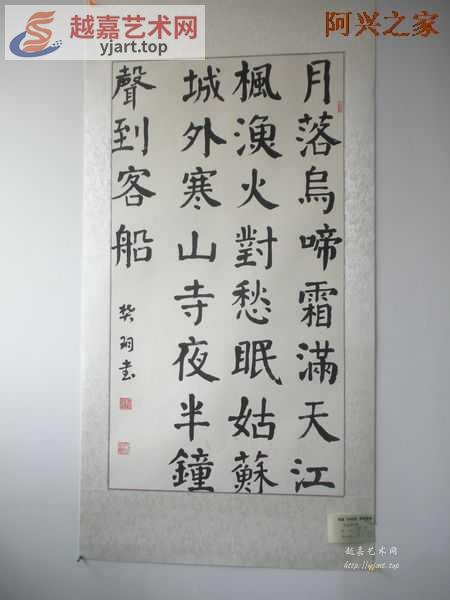 越嘉艺术网
yjart.top
阿兴之家
月落烏啼霜滿天江
楓漁火對愁眠姑蘇
城外寒山寺夜半鐘
聲到客船
樊翔书
越嘉艺术网
http://yjart.top